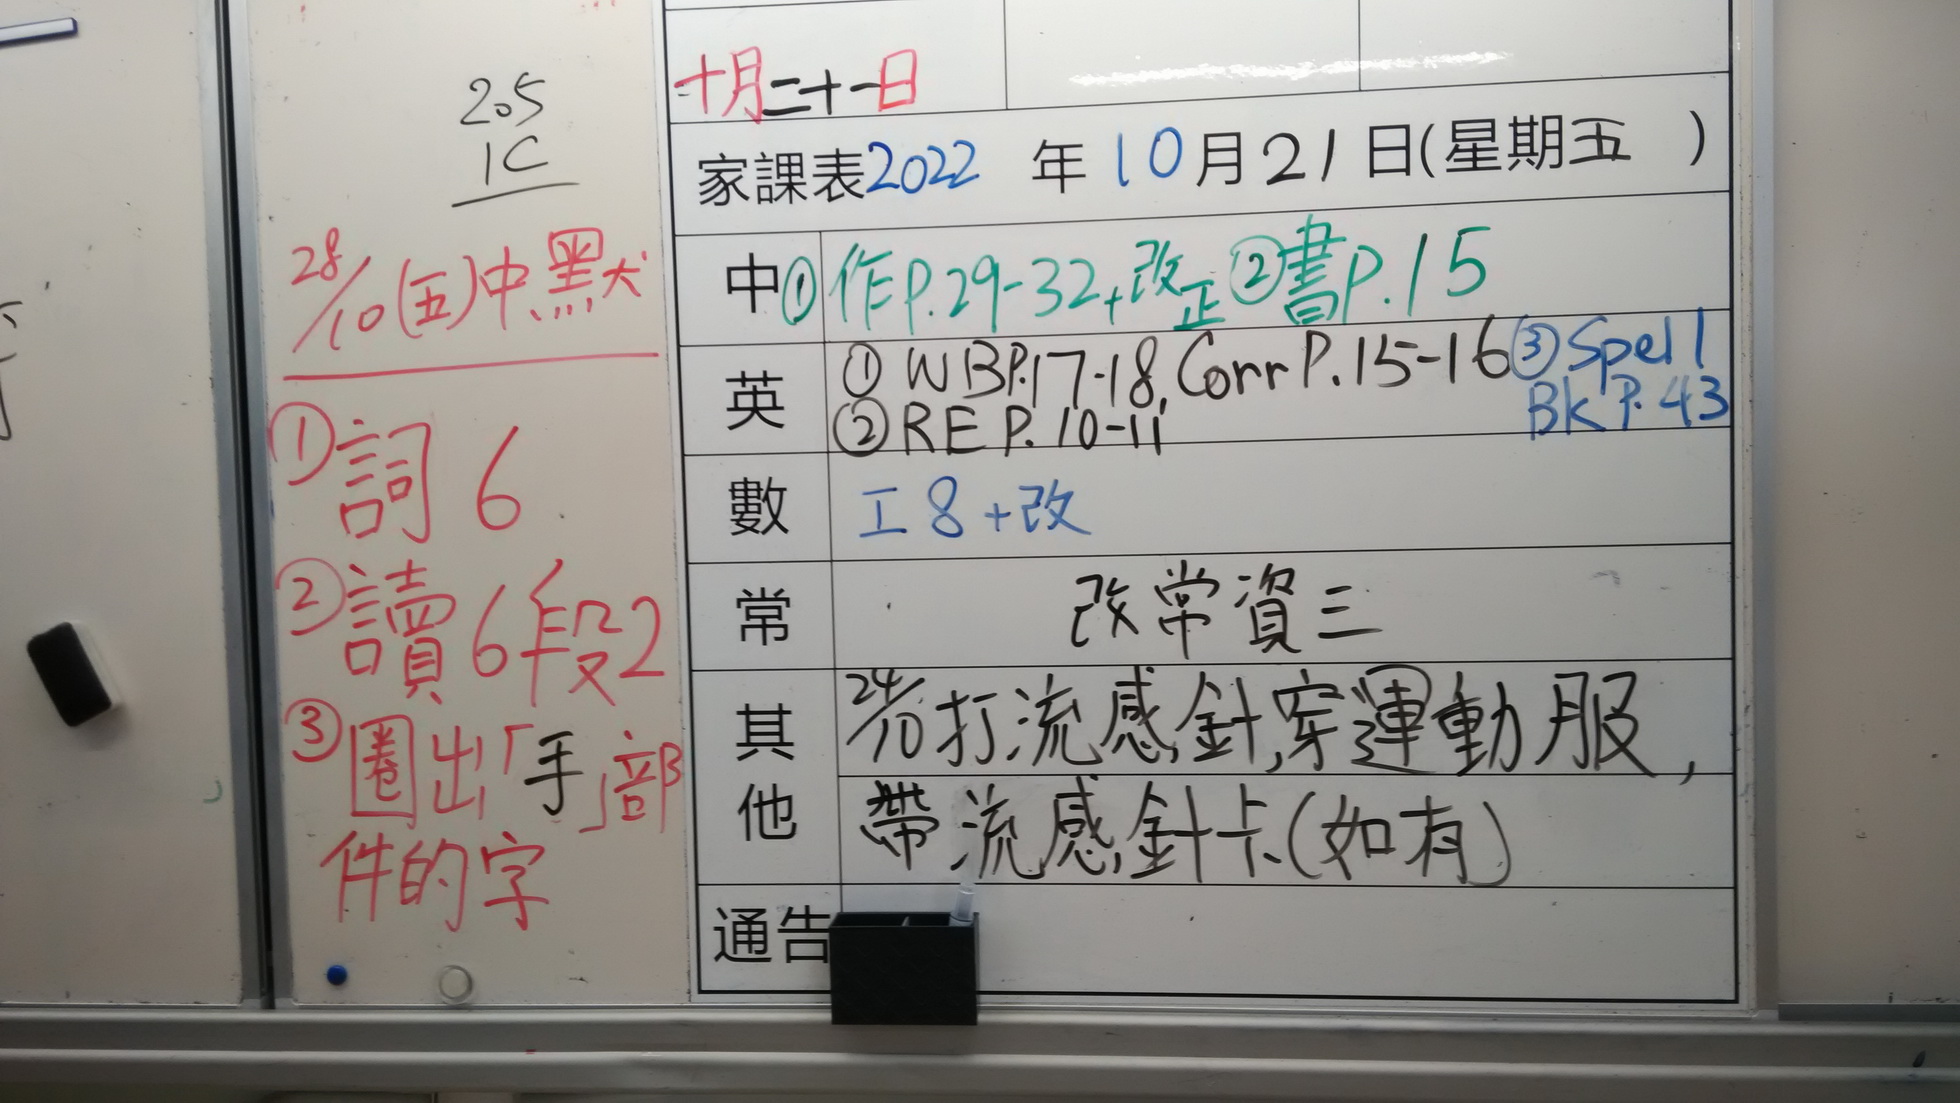 205
1C
28/10(五)中.默
①詞 6
②讀6段2
③圈出「手」部
件的字
十月二十一日
家課表2022 年10月21日(星期五 )
中①作P.29-32+改正②書P.15
英 ①WBP.17-18,Corr P.15-16③Spell
②RE P.10-11 BK P.43
數 工8+改
常 改常資三
其他 24/10打流感針,穿運動服,
帶流感針卡(如有)
通告